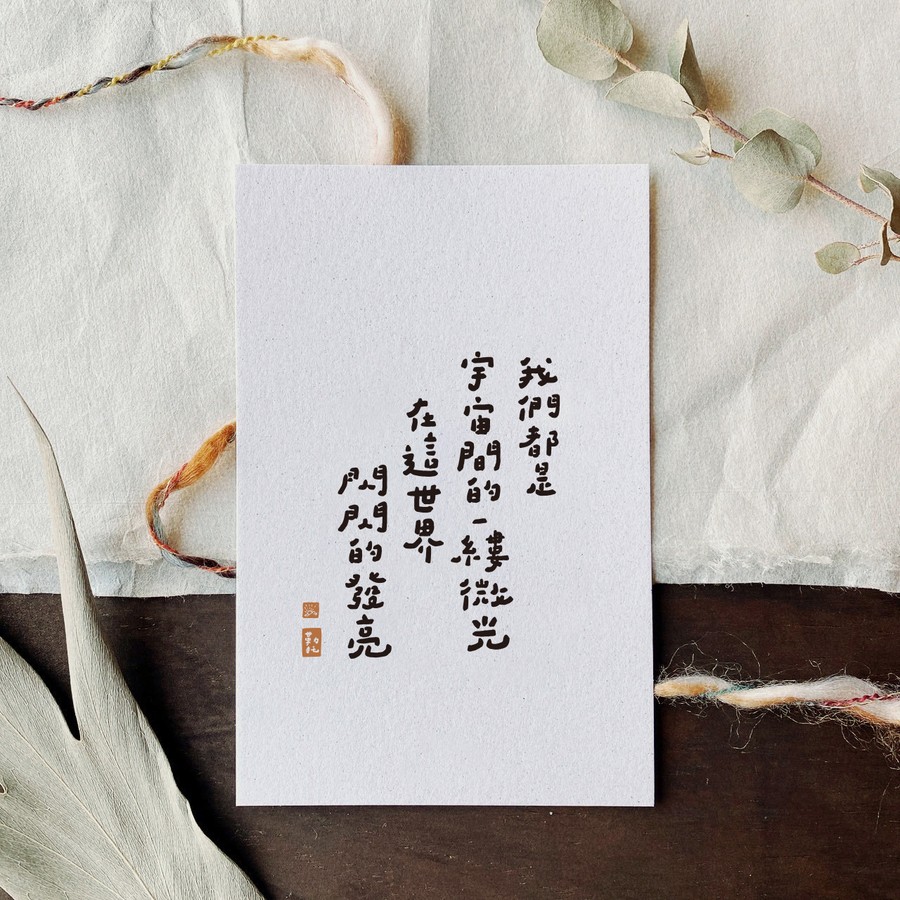 我們都是
宇宙間的一縷微光
在這世界
閃閃的發亮